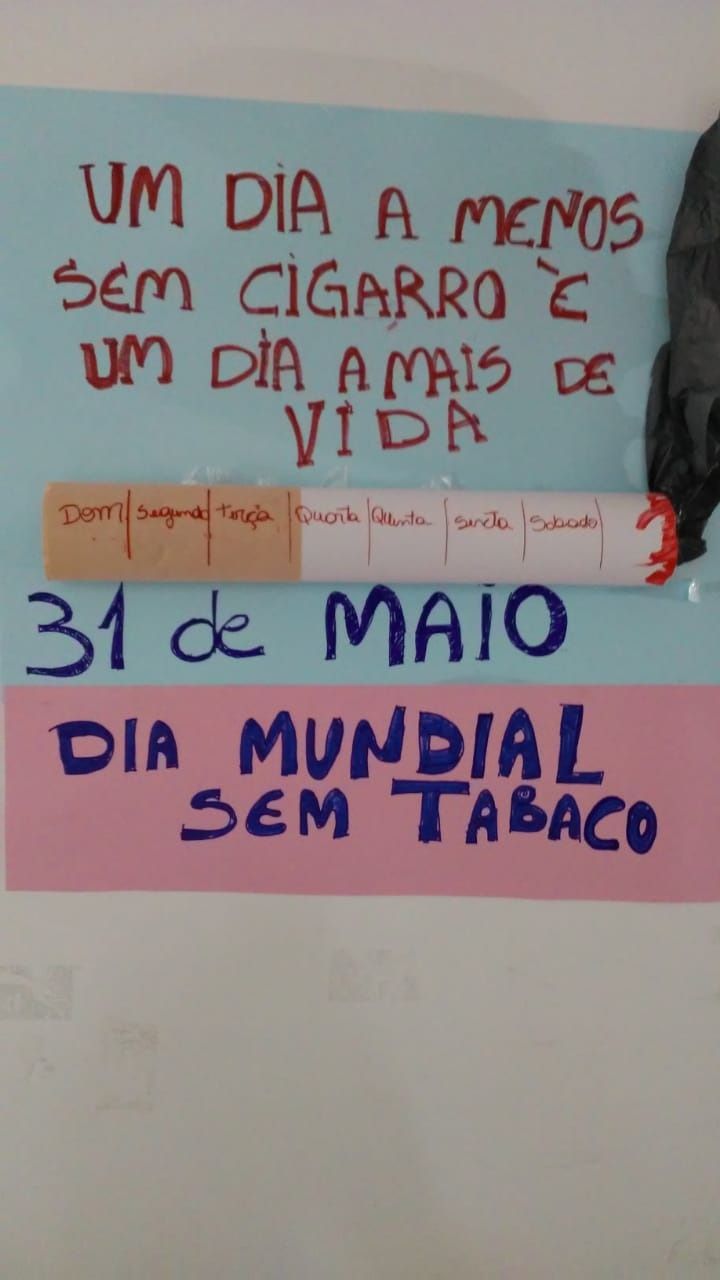 UM DIA A MENOS
SEM CIGARRO È
UM DIA A MAIS DE
VIDA
Dom Segunda terça Quarta Quinta Sexta Sabado
31 de MAIO
DIA MUNDIAL
SEM TABACO